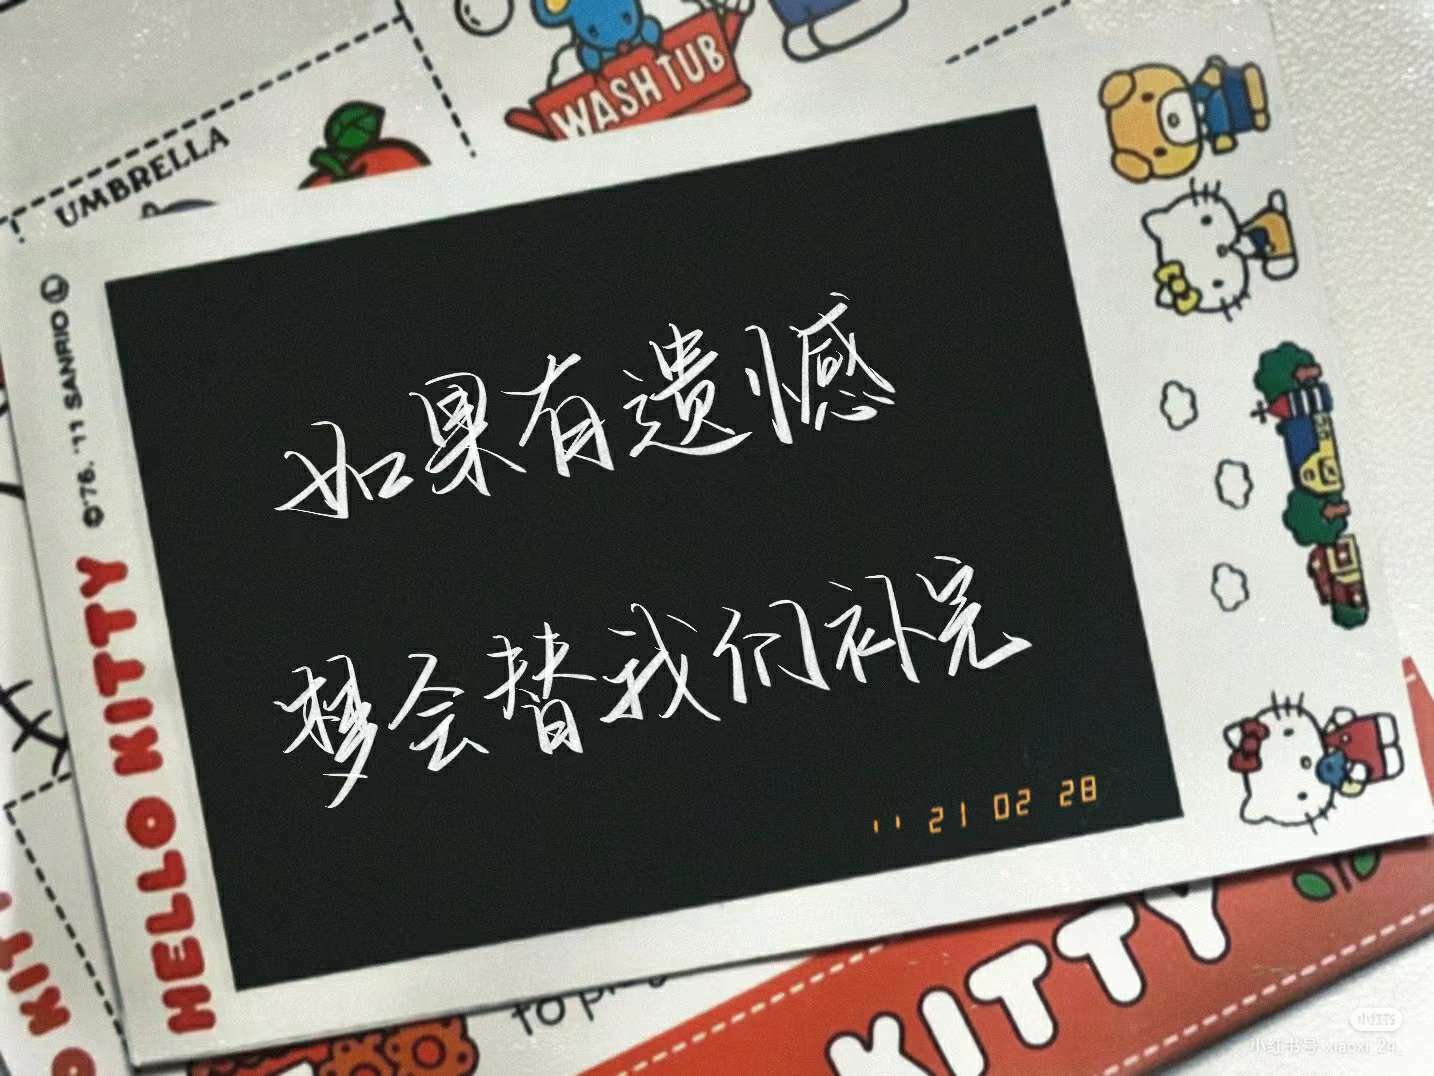 WASH TUB
UMBRELLA
©'76, '77 SANRIO Ⓛ
HELLO KITTY
如果有遗憾
梦会替我们补完
'' 21 02 28
KITTY
KITTY
to
小红书
小红书号 xiaoxi_24_